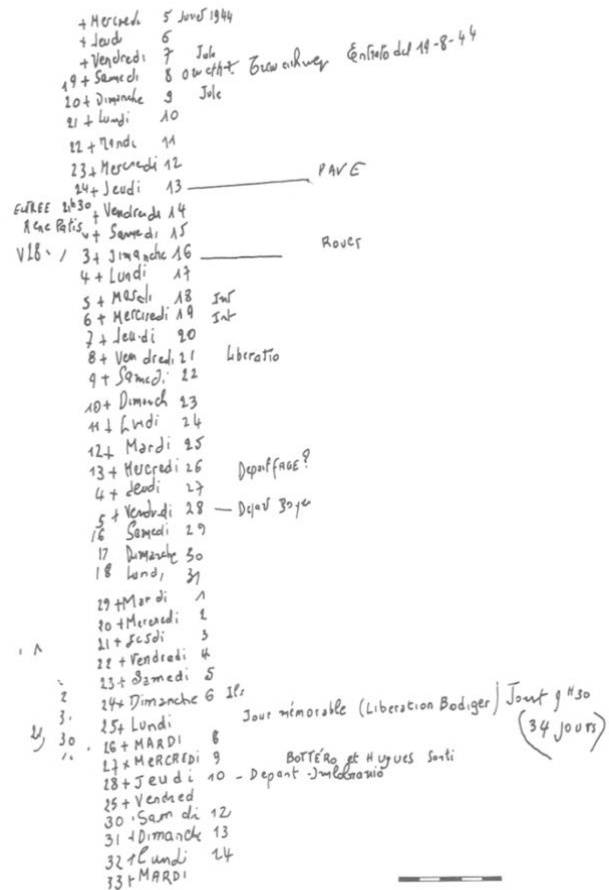 + Mercredi 5 1944
+ Jeudi 6
+ Vendredi 7 Jule
19 + Samedi 8 19-8-44
20 + Dimanche 9 Jule
21 + Lundi 10
22 + 11
23 + Mercredi 12
24 + Jeudi 13 PAVE
+ Vendredi 14
+ Samedi 15
3 + Dimanche 16
4 + Lundi 17
5 + Mardi 18 Int
6 + Mercredi 19 Int
7 + Jeudi 20
8 + Vendredi 21 Liberatio
9 + Samedi 22
10 + Dimanch 23
11 + Lundi 24
12 + Mardi 25
13 + Mercredi 26
4 + Jeudi 27
5 + Vendredi 28
16 Samedi 29
17 Dimanche 30
18 Lundi 31
29 + Mardi 1
20 + Mercredi 2
21 + 3
22 + Vendredi 4
23 + Samedi 5
24 + Dimanche 6
25 + Lundi Jour mémorable (Liberation Bodiger) 9H30
(34 JOURS)
26 + MARDI 8
27 + MERCREDI 9 BOTTÉRO et Hugues Sorti
28 + Jeudi 10 - Depart
25 + Vendred
30 Samdi 12
31 + Dimanche 13
32 + Lundi 14
33 + MARDI